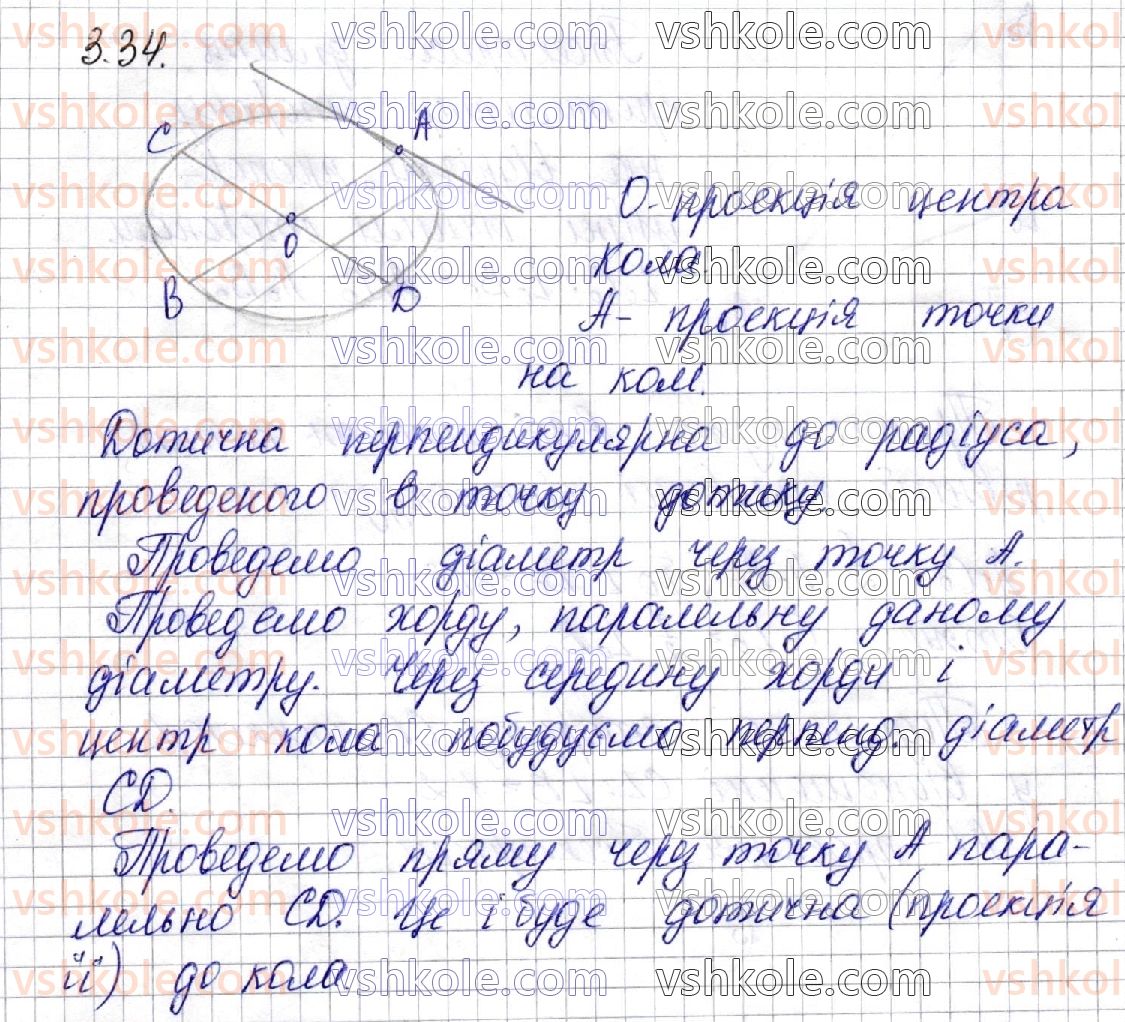 3.34.
C
A
O
B
D
О - проекція центра
кола.
А - проекція точки
на колі.
Дотична перпендикулярна до радіуса,
проведеного в точку дотику.
Проведемо діаметр через точку А.
Проведемо хорду, паралельну даному
діаметру. Через середину хорди і
центр кола побудуємо перпенд. діаметр
CD.
Проведемо пряму через точку А пара-
лельно CD. Це і буде дотична (проекція
її) до кола.
vshkole.com